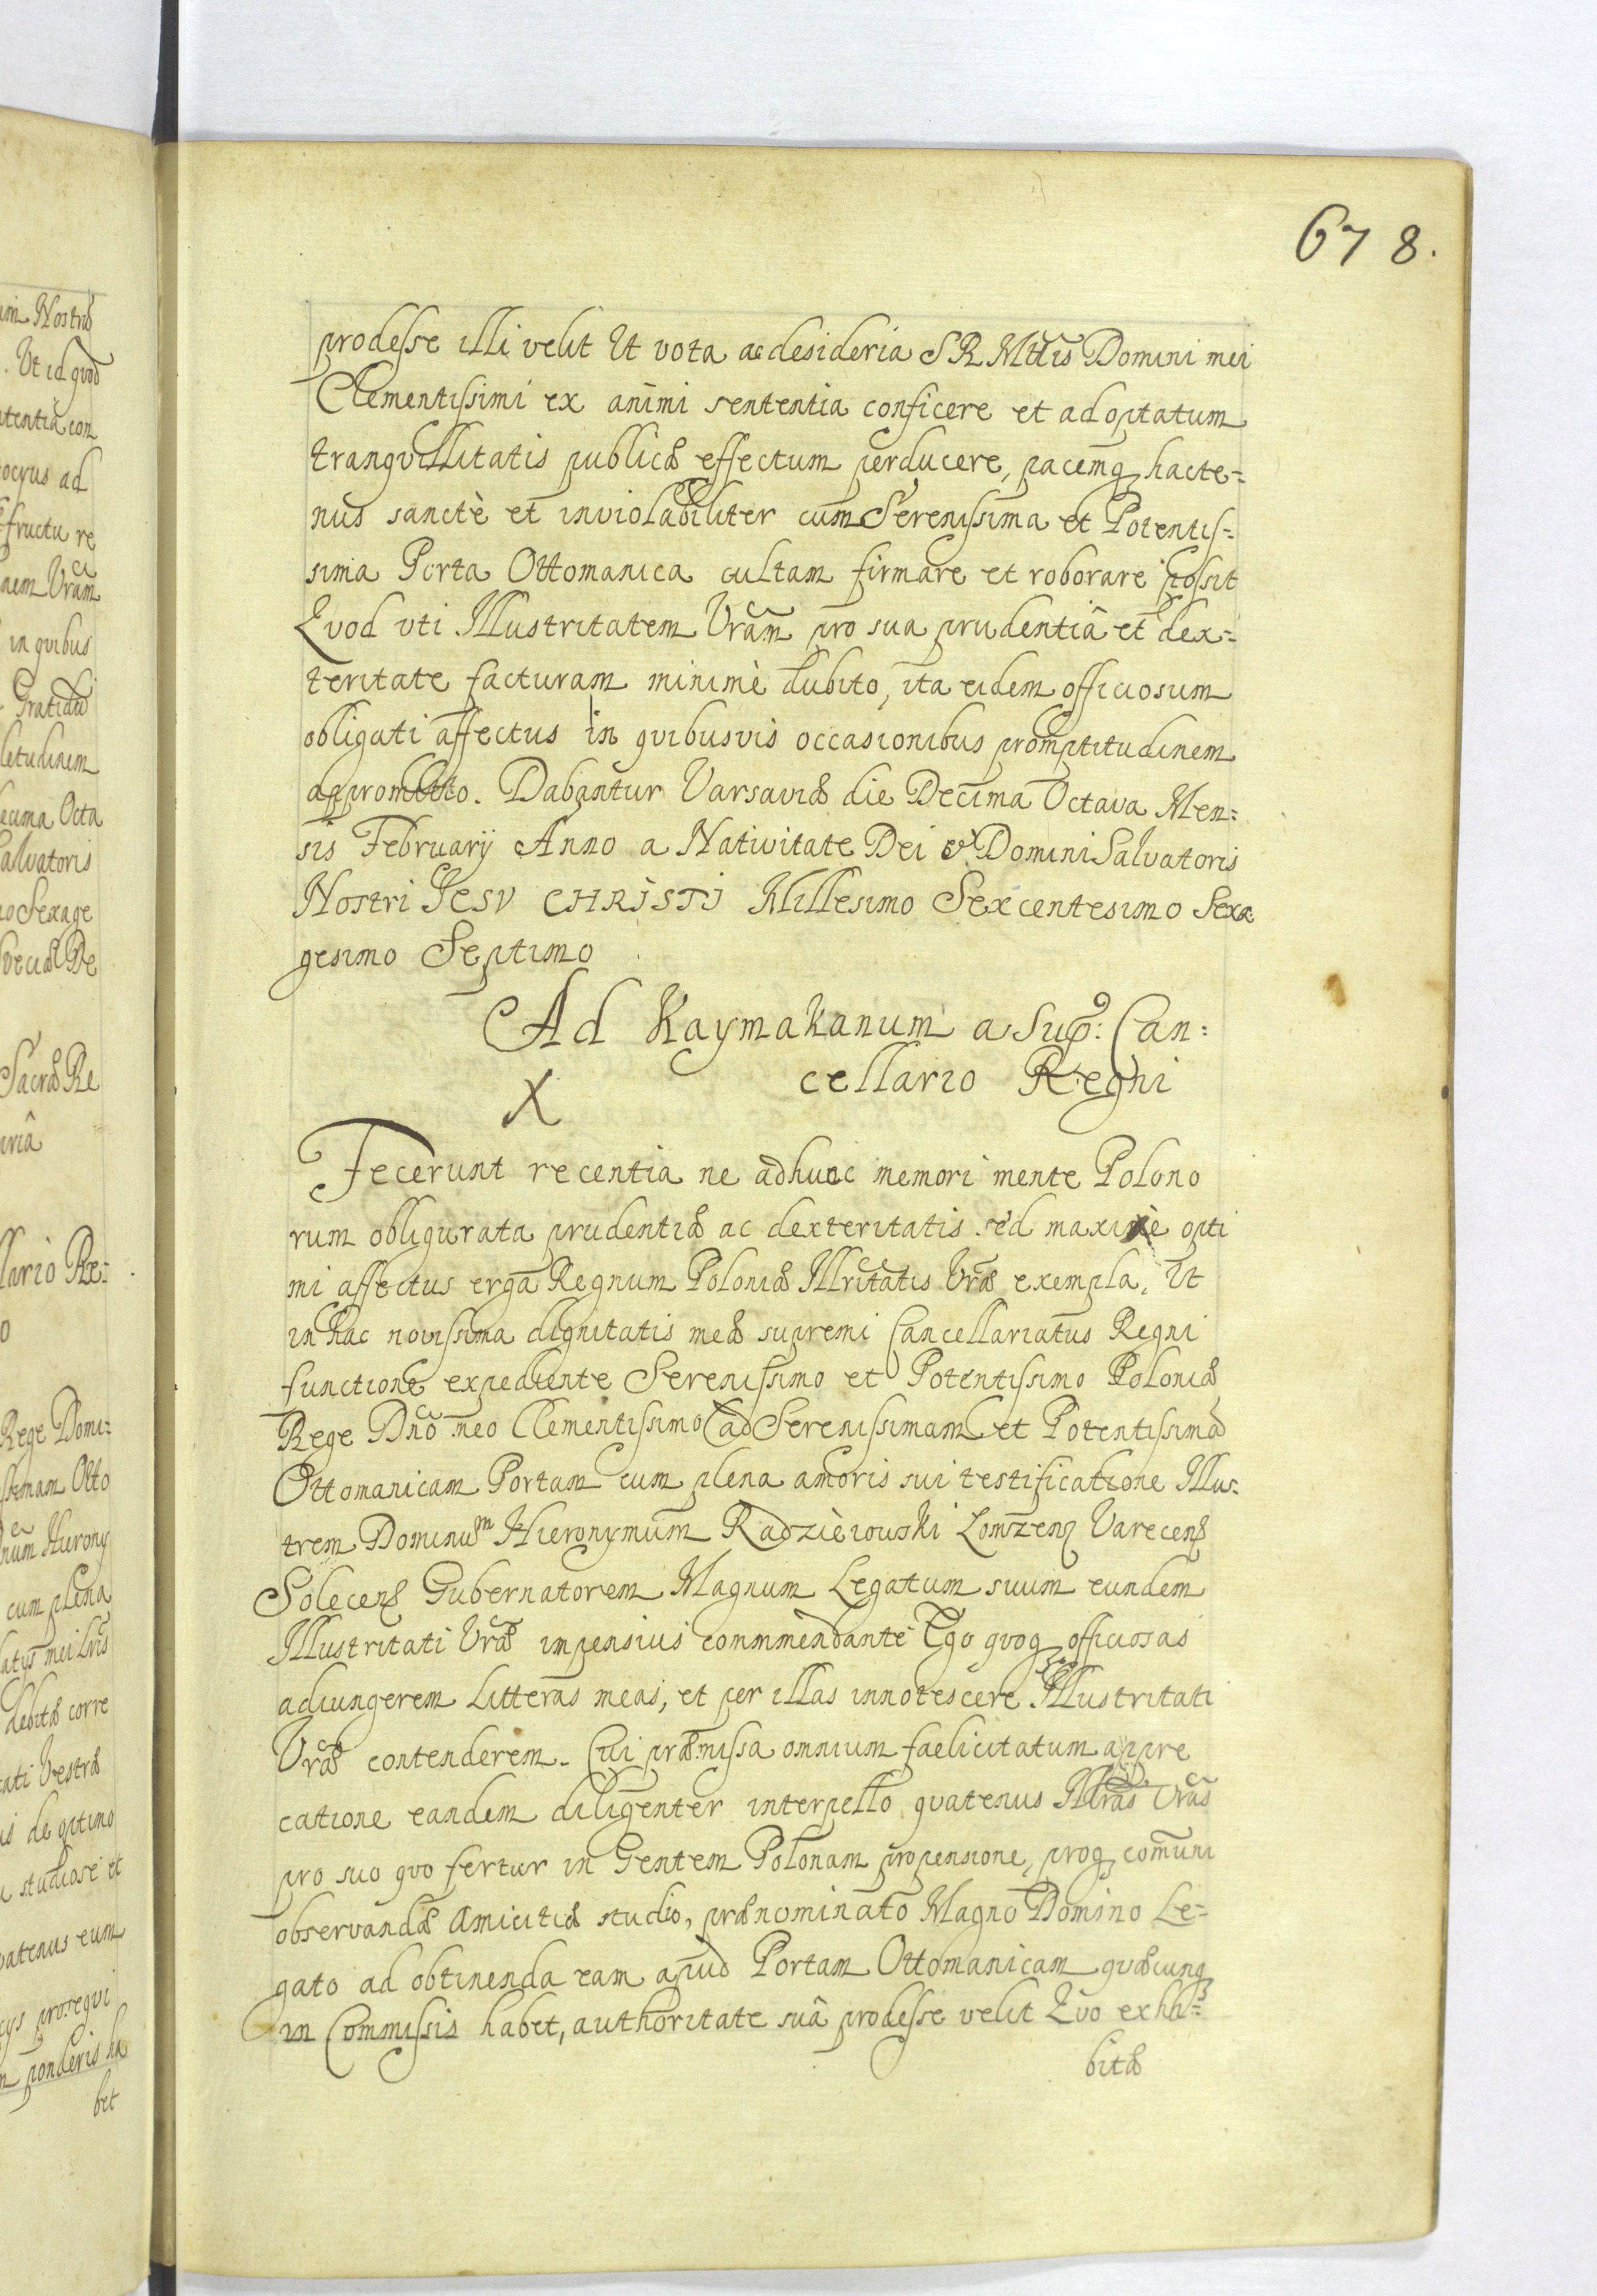 678.
prodesse illi velit Ut vota ac desideria S R Mttis Domini mei
Clementissimi ex animi sententia conficere et ad optatum
tranqvillitatis publicæ effectum perducere, pacemq hacte=
nus sanctè et inviolabiliter cum Serenissima et Potentis=
sima Porta Ottomanica cultam firmare et roborare possit
Qvod vti Illustritatem Vram pro sua prudentiâ et dex=
teritate facturam minimè dubito, ita eidem officiosum
obligati affectus in qvibusvis occasionibus promptitudinem
appromitto. Dabantur Varsaviæ die Decima Octava Men=
sis February Anno a Nativitate Dei & Domini Salvatoris
Nostri Jesv CHRISTI Millesimo Sexcentesimo Sexa
gesimo Septimo
Ad Kaymakanum a Sup: Can=
cellario Regni
X
Fecerunt recentia ne adhuc memori mente Polono
rum obligurata prudentiæ ac dexteritatis sed maximè opti
mi affectus erga Regnum Poloniæ Illritatis Vræ exempla, Ut
in hac novissima dignitatis meæ supremi Cancellariatus Regni
functione expediente Serenissimo et Potentissimo Poloniæ
Rege Dno meo Clementissimo ad Serenissimam et Potentissimã
Ottomanicam Portam cum plena amoris sui testificatione Illus=
trem Dominum Hieronymum Radzieiouski Lomzens Varecens
Solecens Gubernatorem Magnum Legatum suum eundem
Illustritati Vræ inpensius commmendante Ego qvoq officiosas
adiungerem Litteras meas, et per illas innotescere Illustritati
Vræ contenderem. Cui præmissa omnium faelicitatum appre
catione eandem diligenter interpello qvatenus Illras Vras
pro suo qvo fertur in Gentem Polonam propensione, proq comuni
observandæ Amicitiæ studio, prænominato Magno Domino Le=
gato ad obtinenda eam apud Portam Ottomanicam qvæcunq
in Commissis habet, authoritate suâ prodesse velit Qvo exhi=
bitæ